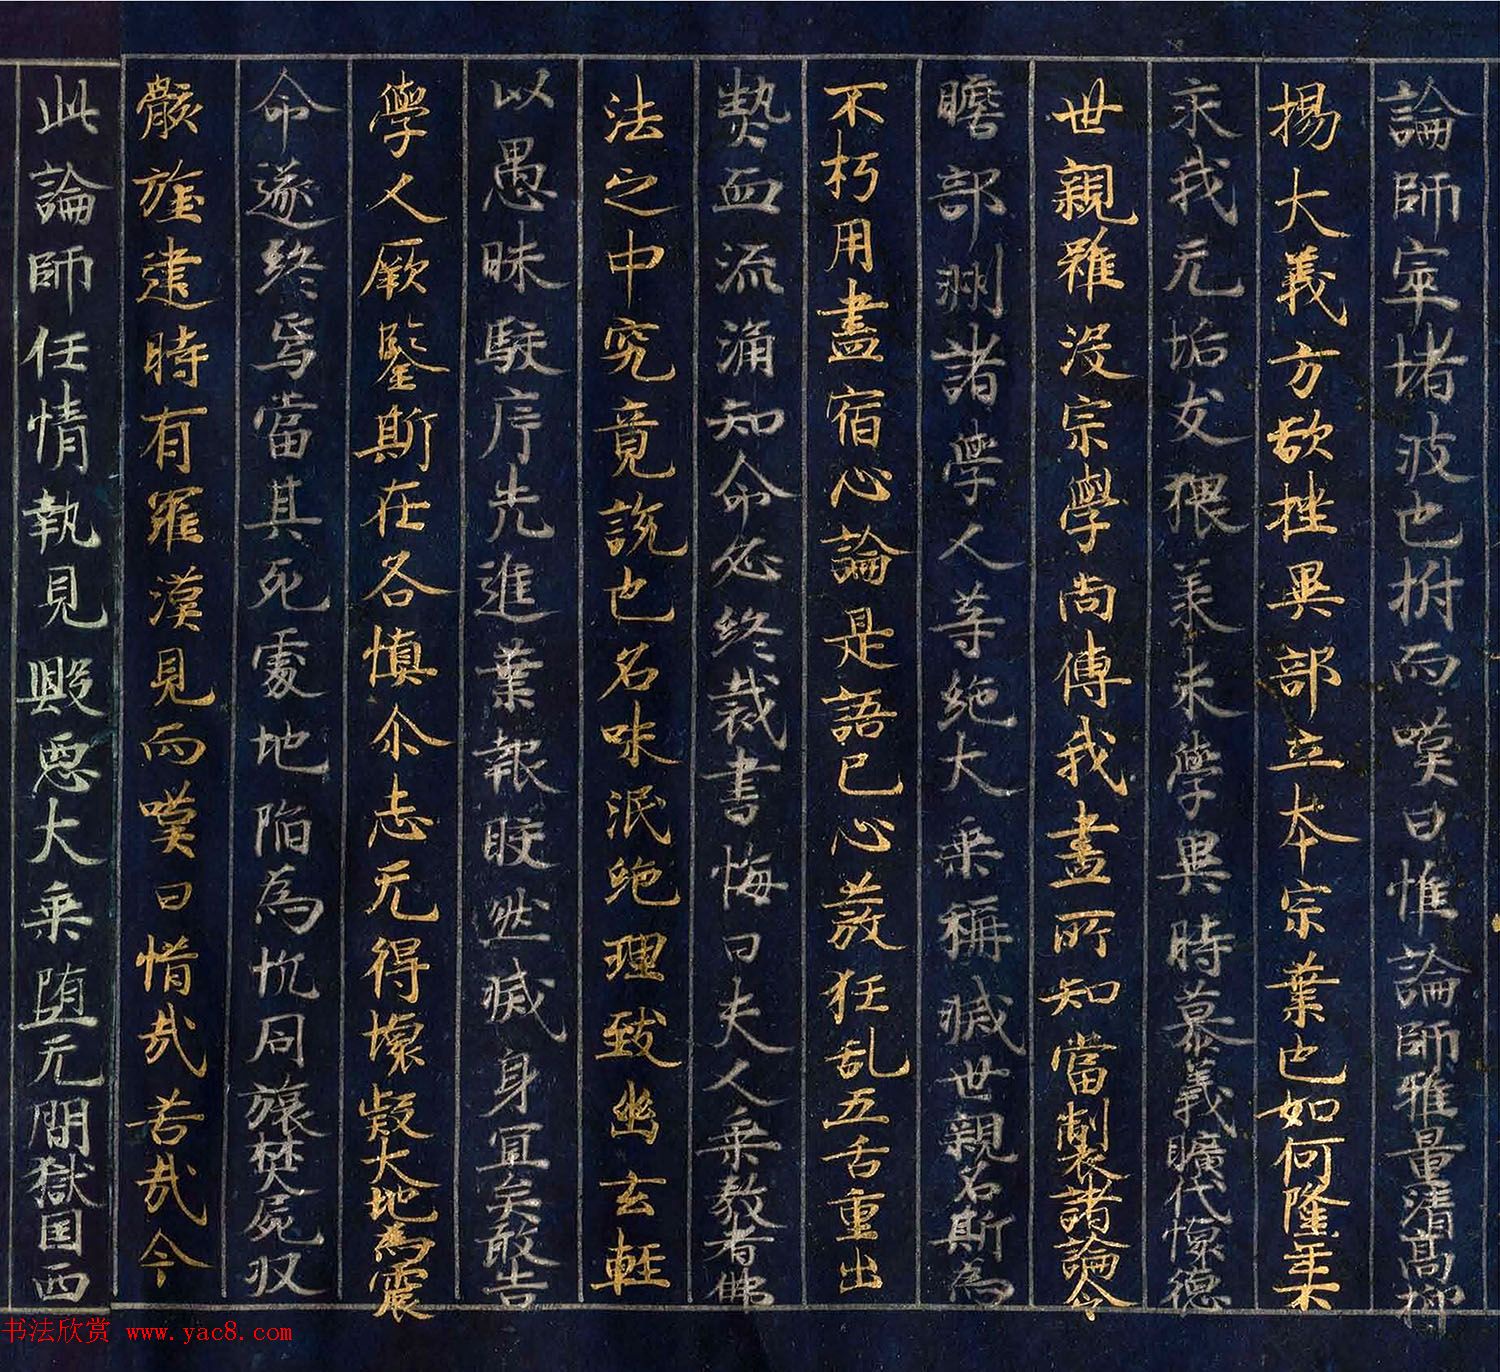 論師窣堵波也拊而嘆曰惟論師雅量清高抑
揚大義方欲挫異部立本宗業也如何降年不
永我无垢友猥承末學異時慕義曠代懷德
世親雖没宗學尚傳我盡所知當製諸論令
贍部洲諸學人等絶大乘稱滅世親名斯為
不朽用盡宿心論是語已心發狂乱五舌重出
熱血流涌知命必終裁書悔曰夫大乘教者佛
法之中究竟說也名味泯絶理致幽玄輕
以愚昧駮斥先進業報皎然滅身宜矣敢告
學人厥鑒斯在各慎尒志无得懷疑大地為震
命遂終焉當其死處地陷為坑同旅焚屍収
骸旌建時有羅漢見而嘆曰惜哉苦哉今
此論師任情執見毀惡大乘堕无間獄国西
书法欣赏 www.yac8.com